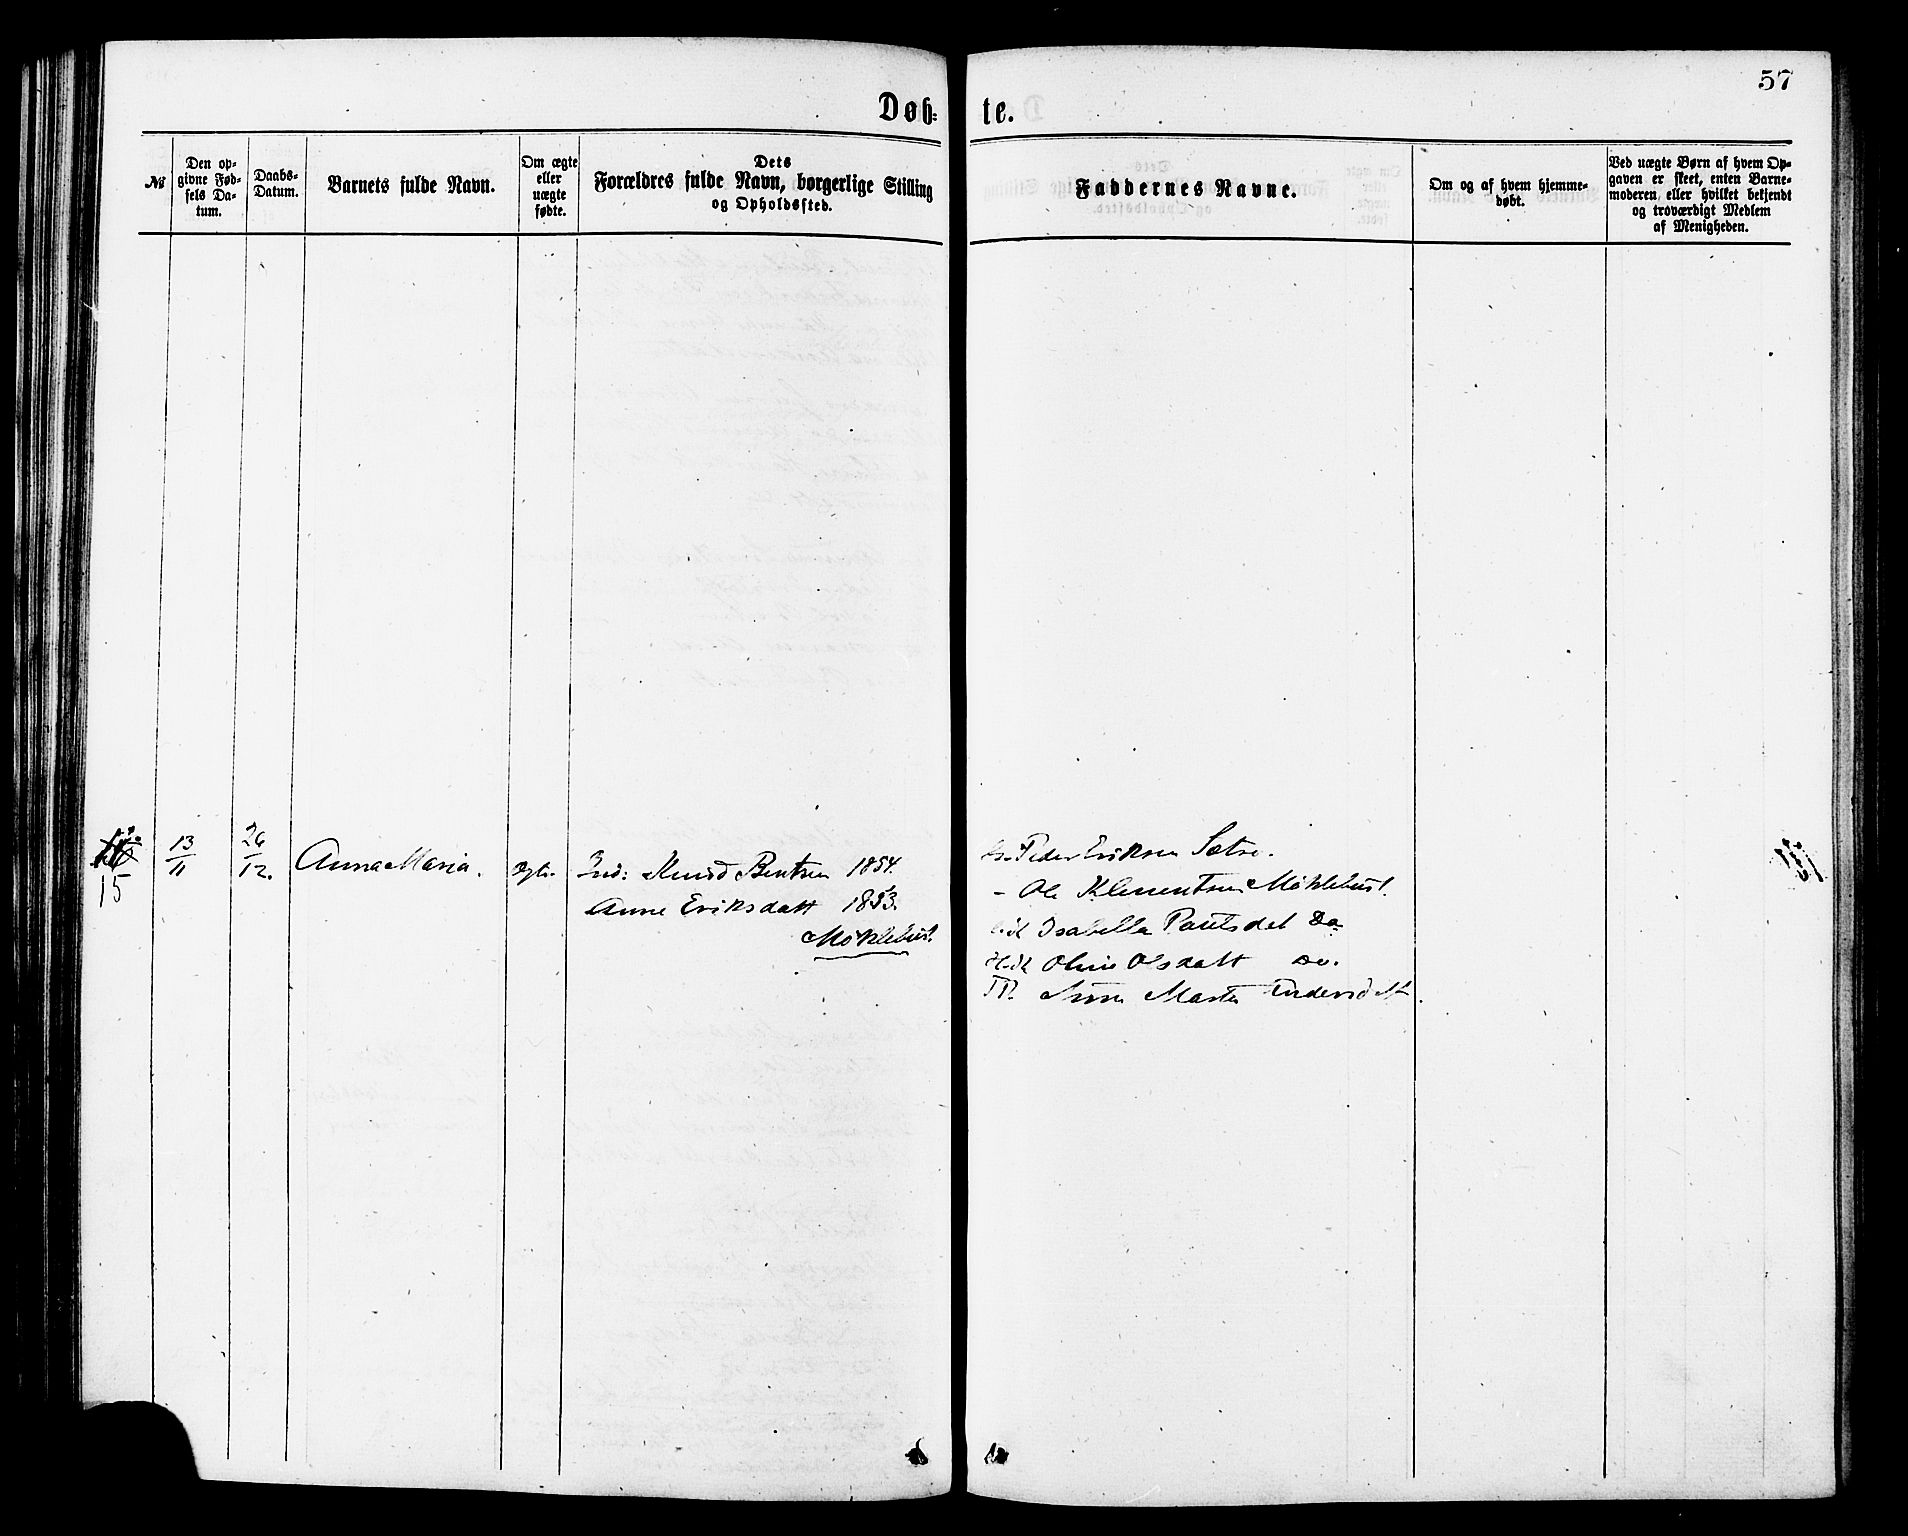 57
Døb- te.
№
Den op-
givne Fød-
sels Da-
tum.
Daabs-
Datum.
Barnets fulde Navn.
Om ægte
eller
uægte
fødte.
Dets
Forældres fulde Navn, borgerlige Stilling
og Opholdssted.
Faddernes Navne.
Om og af hvem hjemme-
døbt.
Ved uægte Børn af hvem Op-
gaven er skeet, enten Barne-
moderen eller hvilket bekjendt
og troværdigt Medlem
af Menigheden.
15
13/11
26/12.
Anna Maria.
Ind: Knud Bentsen 1854.
Anne Eriksdatt 1853.
Møklebust.
Peder Eriksen Sætre.
- Ole Klementsen Møklebust.
Isabella Paulsdet Do
Oline Olsdatt Do.
Marte Andersdatt.